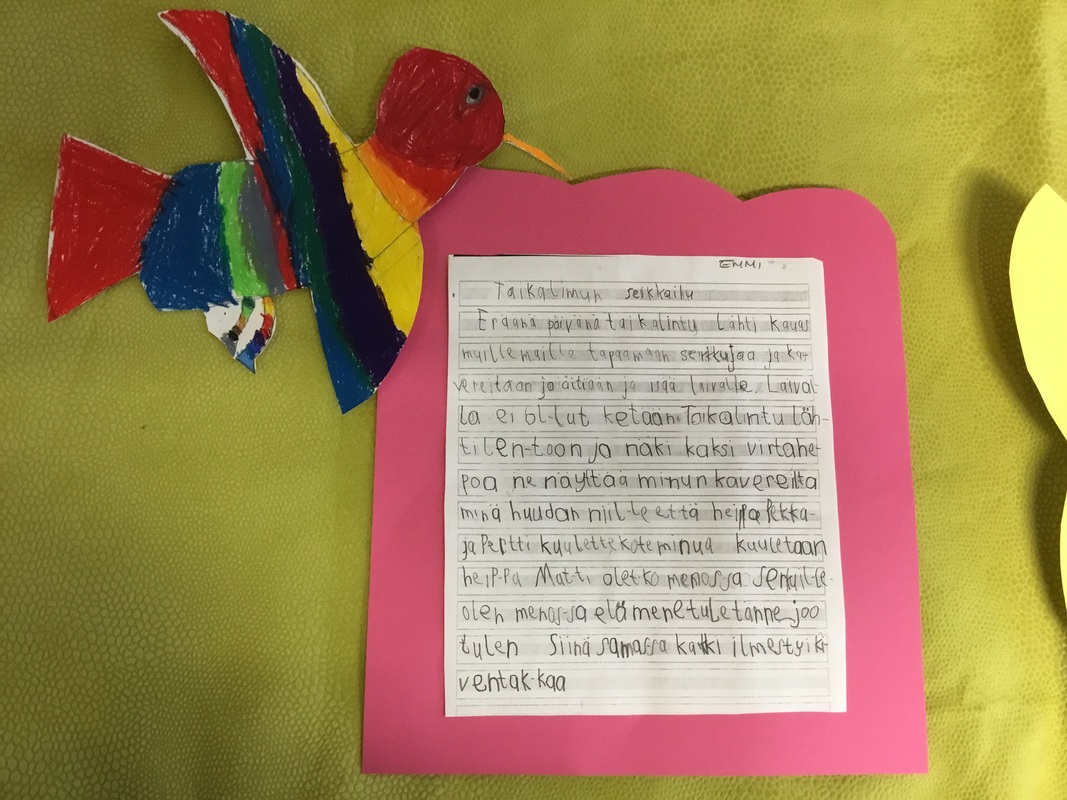 EMMI
Taikalinnun seikkailu
Eräänä päivänä taikalintu lähti kauas
muille maille tapaamaan serkkujaa ja ka-
vereitaan ja äitiään ja isää laivalle. Laival-
la ei ol-lut ketään. Taikalintu läh-
ti len-toon ja näki kaksi virtahe-
poa ne näyttää minun kavereilta
minä huudan niil-le että heippa Pekka-
ja Pertti kuulettekote minua kuuletaan
heip-pa Matti olet-ko menos-sa serkuil-le-
olen menos-sa elä mene tule tänne joo
tulen Siinä samassa kaikki ilmestyi ki-
ven tak-kaa